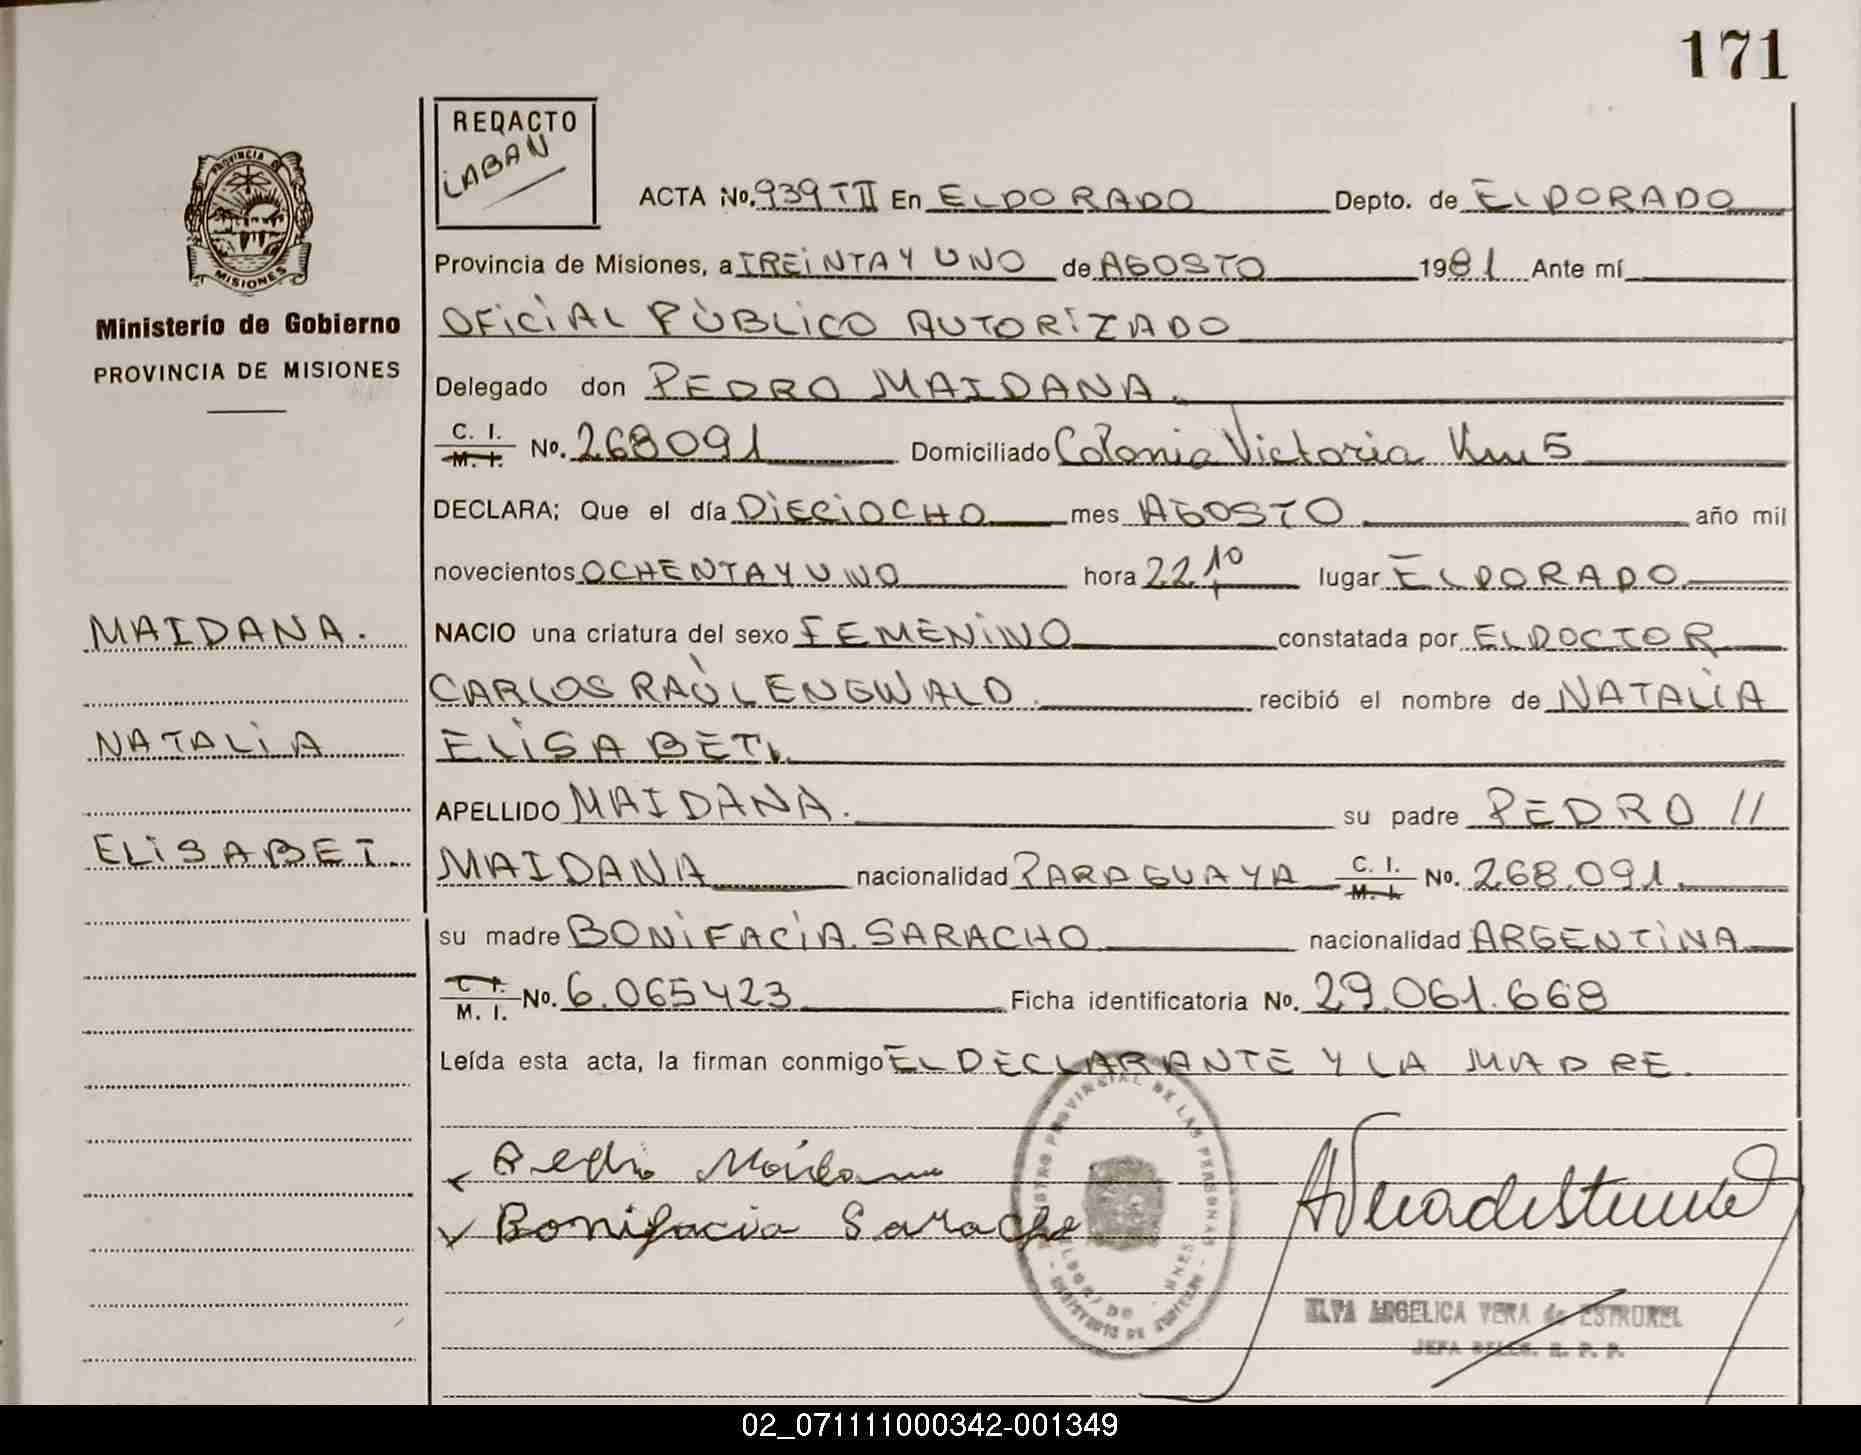 171
REDACTO
LABAN
PROVINCIA DE
MISIONES
Ministerio de Gobierno
PROVINCIA DE MISIONES
ACTA No. 939 TII En ELDORADO Depto. de ELDORADO
Provincia de Misiones, a TREINTA Y UNO de AGOSTO 1981 Ante mí
OFICIAL PÚBLICO AUTORIZADO
Delegado don PEDRO MAIDANA.
C. I. M. I. No. 268091 Domiciliado Colonia Victoria Km 5
DECLARA; Que el día DIECIOCHO mes AGOSTO año mil
novecientos OCHENTA Y UNO hora 22,10 lugar ELDORADO
NACIO una criatura del sexo FEMENINO constatada por EL DOCTOR
CARLOS RAÚL ENGWALD. recibió el nombre de NATALIA
ELISABET.
APELLIDO MAIDANA. su padre PEDRO //
MAIDANA nacionalidad PARAGUAYA C. I. M. I. No. 268.091.
su madre BONIFACIA SARACHO nacionalidad ARGENTINA
C. I. M. I. No. 6.065423 Ficha identificatoria No. 29.061.668
Leída esta acta, la firman conmigo EL DECLARANTE Y LA MADRE.
MAIDANA.
NATALIA
ELISABET.
Pedro Maidana
Bonifacia Saracho
REGISTRO PROVINCIAL DE LAS PERSONAS
ELDORADO
MINISTERIO DE
ANGELICA VERA de ESTRUMEL
JEFA R. P. P.
02_071111000342-001349